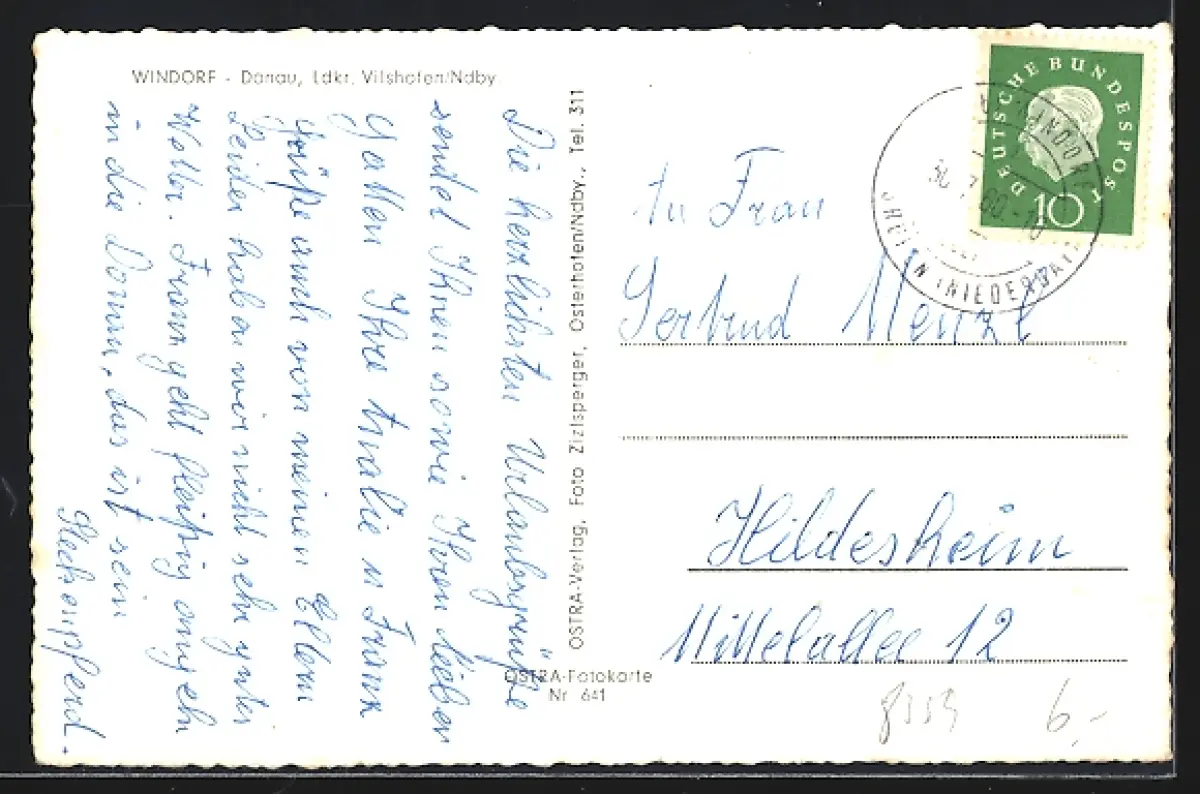 WINDORF - Donau, Ldkr. Vilshofen/Ndby
Die herzlichsten Urlaubsgrüße
sendet Ihnen sowie Ihren lieben
Gatten Ihre Analie u Franz
Grüße auch von meinen Eltern
Leider haben wir nicht sehr gutes
Wetter. Franz geht fleißig angeln
in die Donau, das ist sein
Steckenpferd.
OSTRA-Verlag, Foto Zizlsperger, Osterhofen/Ndby., Tel. 311
OSTRA-Fotokarte
Nr 641
DEUTSCHE BUNDESPOST
10
(NIEDERBAY
An Frau
Gertrud Menzel
Hildesheim
Mittelallee 12
6,-